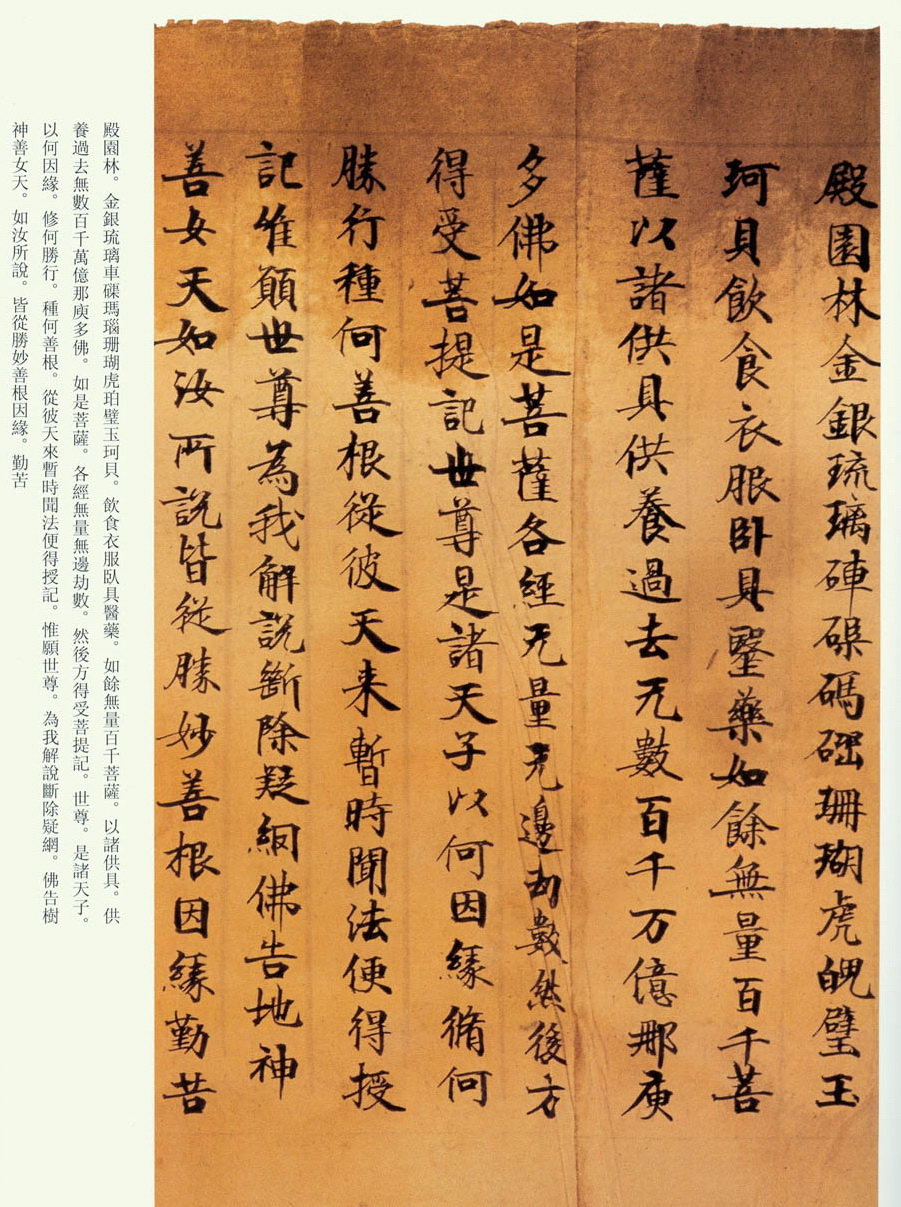 殿園林金銀琉璃硨磲碼碯珊瑚虎魄璧玉
珂貝飲食衣服臥具毉藥如餘無量百千菩
薩以諸供具供養過去无數百千万億那庾
多佛如是菩薩各經无量无邊劫數然後方
得受菩提記世尊是諸天子以何因緣脩何
勝行種何善根從彼天来暫時聞法便得授
記唯願世尊為我解說斷除疑網佛告地神
善女天如汝所說皆從勝妙善根因緣勤苦
殿園林。金銀琉璃車磲瑪瑙珊瑚虎珀璧玉珂貝。飲食衣服臥具醫藥。如餘無量百千菩薩。以諸供具。供
養過去無數百千萬億那庾多佛。如是菩薩。各經無量無邊劫數。然後方得受菩提記。世尊。是諸天子。
以何因緣。修何勝行。種何善根。從彼天來暫時聞法便得授記。惟願世尊。為我解說斷除疑網。佛告樹
神善女天。如汝所說。皆從勝妙善根因緣。勤苦